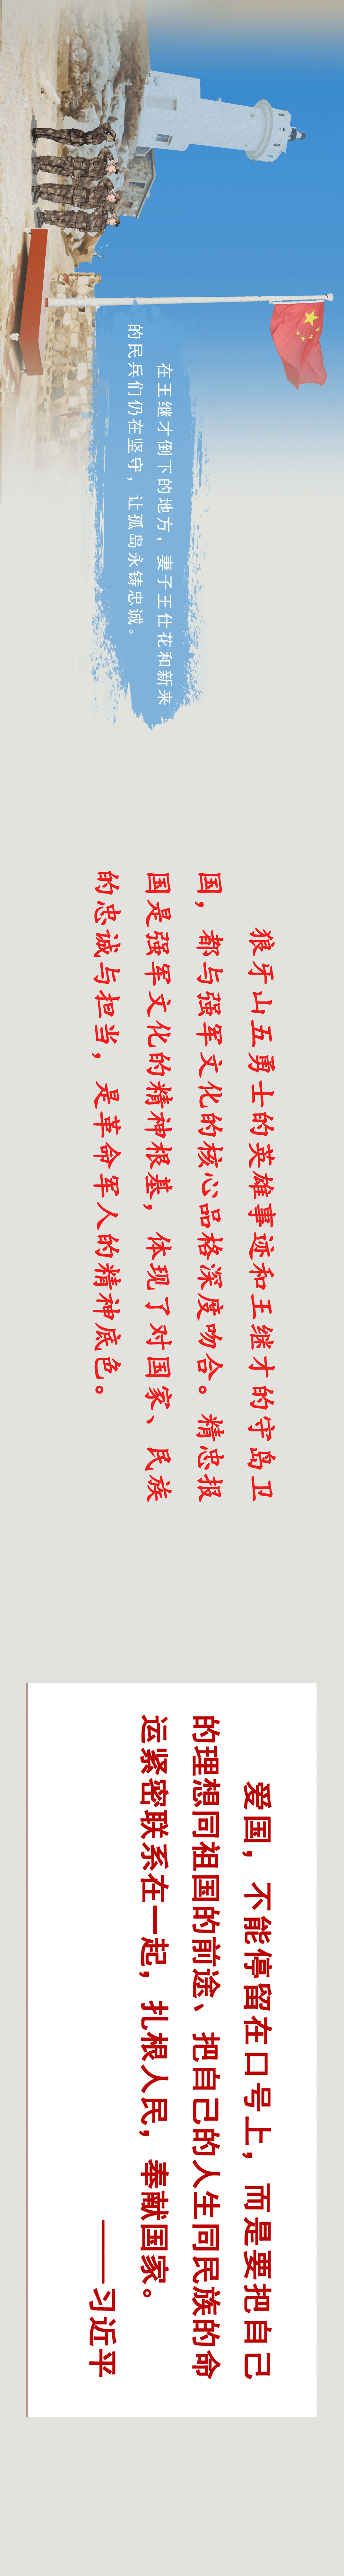 在王继才倒下的地方，妻子王仕花和新来
的民兵们仍在坚守，让孤岛永铸忠诚。
狼牙山五勇士的英雄事迹和王继才的守岛卫
国，都与强军文化的核心品格深度吻合。精忠报
国是强军文化的精神根基，体现了对国家、民族
的忠诚与担当，是革命军人的精神底色。
爱国，不能停留在口号上，而是要把自己
的理想同祖国的前途、把自己的人生同民族的命
运紧密联系在一起，扎根人民，奉献国家。
——习近平